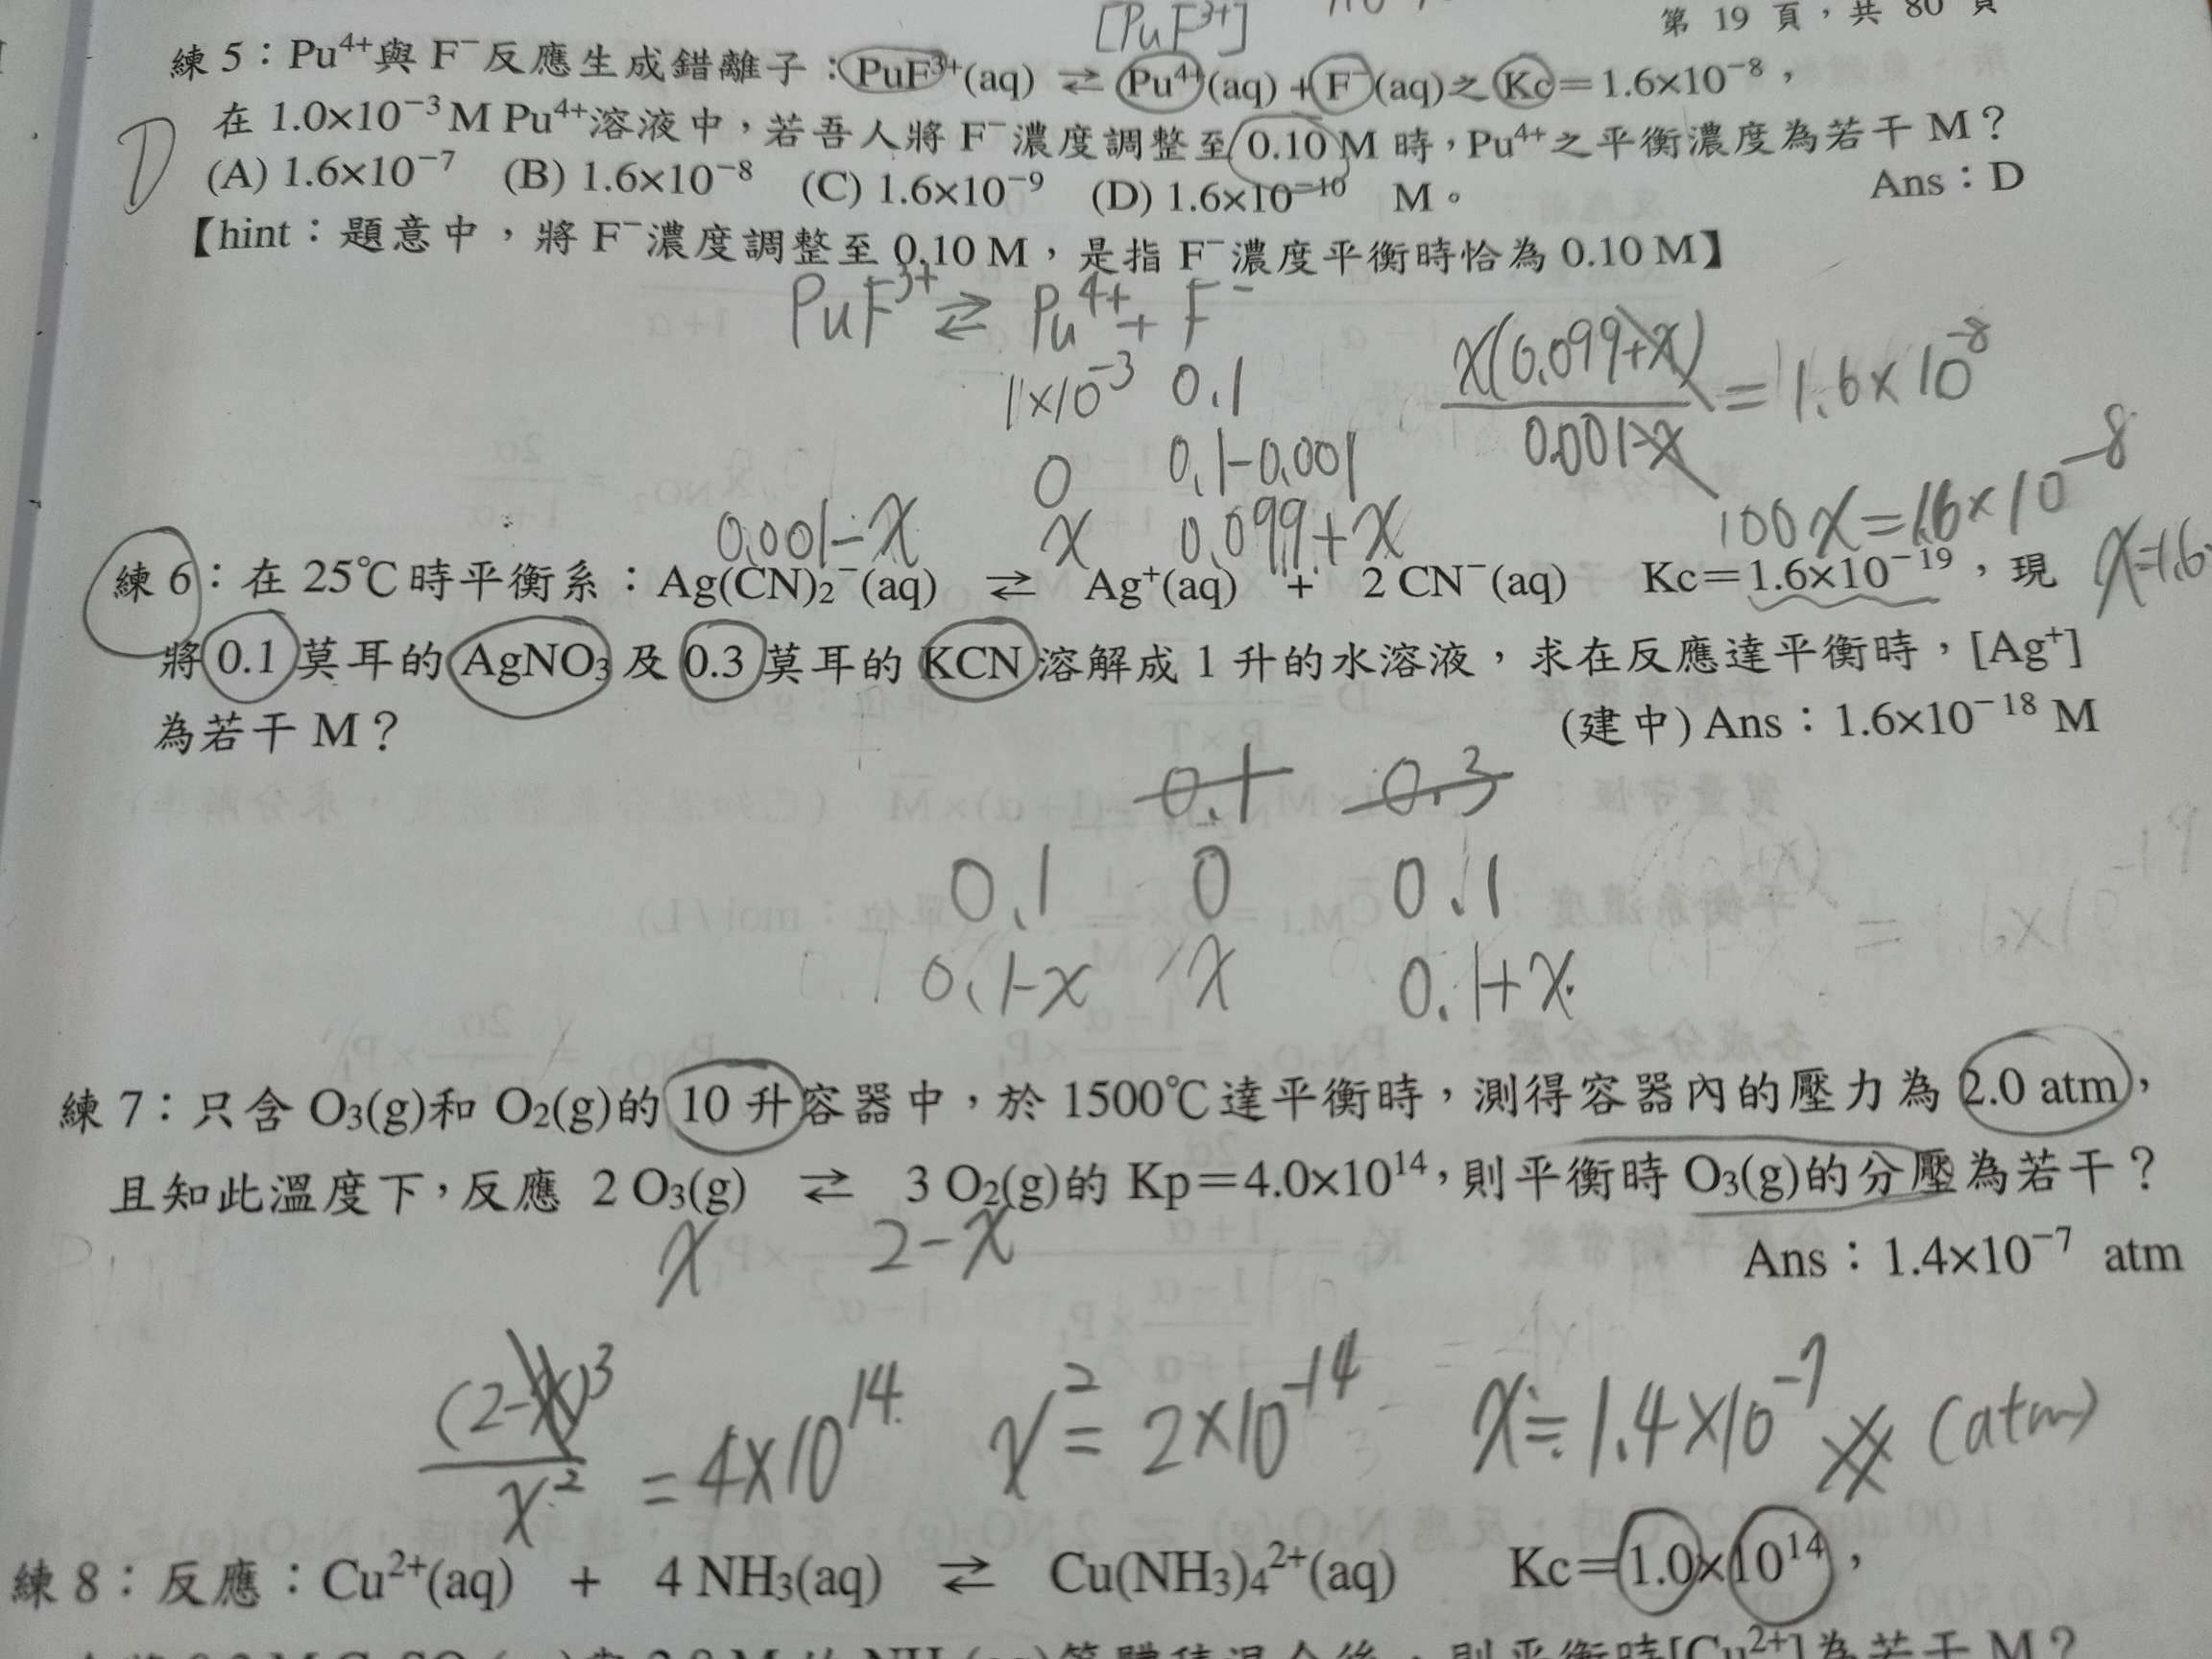 [PuF³⁺]
第 19 頁，共 80 頁
練 5：Pu⁴⁺與 F⁻反應生成錯離子：PuF³⁺(aq) ⇌ Pu⁴⁺(aq) + F⁻(aq)之 Kc＝1.6×10⁻⁸，
在 1.0×10⁻³ M Pu⁴⁺溶液中，若吾人將 F⁻濃度調整至 0.10 M 時，Pu⁴⁺之平衡濃度為若干 M？
D
(A) 1.6×10⁻⁷ (B) 1.6×10⁻⁸ (C) 1.6×10⁻⁹ (D) 1.6×10⁻¹⁰ M。 Ans：D
【hint：題意中，將 F⁻濃度調整至 0.10 M，是指 F⁻濃度平衡時恰為 0.10 M】
PuF³⁺ ⇌ Pu⁴⁺ + F⁻
1×10⁻³ 0.1
0 0.1-0.001
0.001-x x 0.099+x
x(0.099+x)
0.001-x
= 1.6×10⁻⁸
100x=1.6×10⁻⁸
x=1.6
練 6：在 25℃時平衡系：Ag(CN)₂⁻(aq) ⇌ Ag⁺(aq) + 2 CN⁻(aq) Kc＝1.6×10⁻¹⁹，現
將 0.1 莫耳的 AgNO₃ 及 0.3 莫耳的 KCN 溶解成 1 升的水溶液，求在反應達平衡時，[Ag⁺]
為若干 M？ (建中) Ans：1.6×10⁻¹⁸ M
0.1 0.3
0.1 0 0.1
0.1-x x 0.1+x
練 7：只含 O₃(g)和 O₂(g)的 10 升容器中，於 1500℃達平衡時，測得容器內的壓力為 2.0 atm，
且知此溫度下，反應 2 O₃(g) ⇌ 3 O₂(g)的 Kp＝4.0×10¹⁴，則平衡時 O₃(g)的分壓為若干？
x 2-x
Ans：1.4×10⁻⁷ atm
(2-x)³
x²
= 4×10¹⁴ x² = 2×10⁻¹⁴ x≒1.4×10⁻⁷ (atm)
練 8：反應：Cu²⁺(aq) + 4 NH₃(aq) ⇌ Cu(NH₃)₄²⁺(aq) Kc＝1.0×10¹⁴，
則平衡時[Cu²⁺]為若干 M？